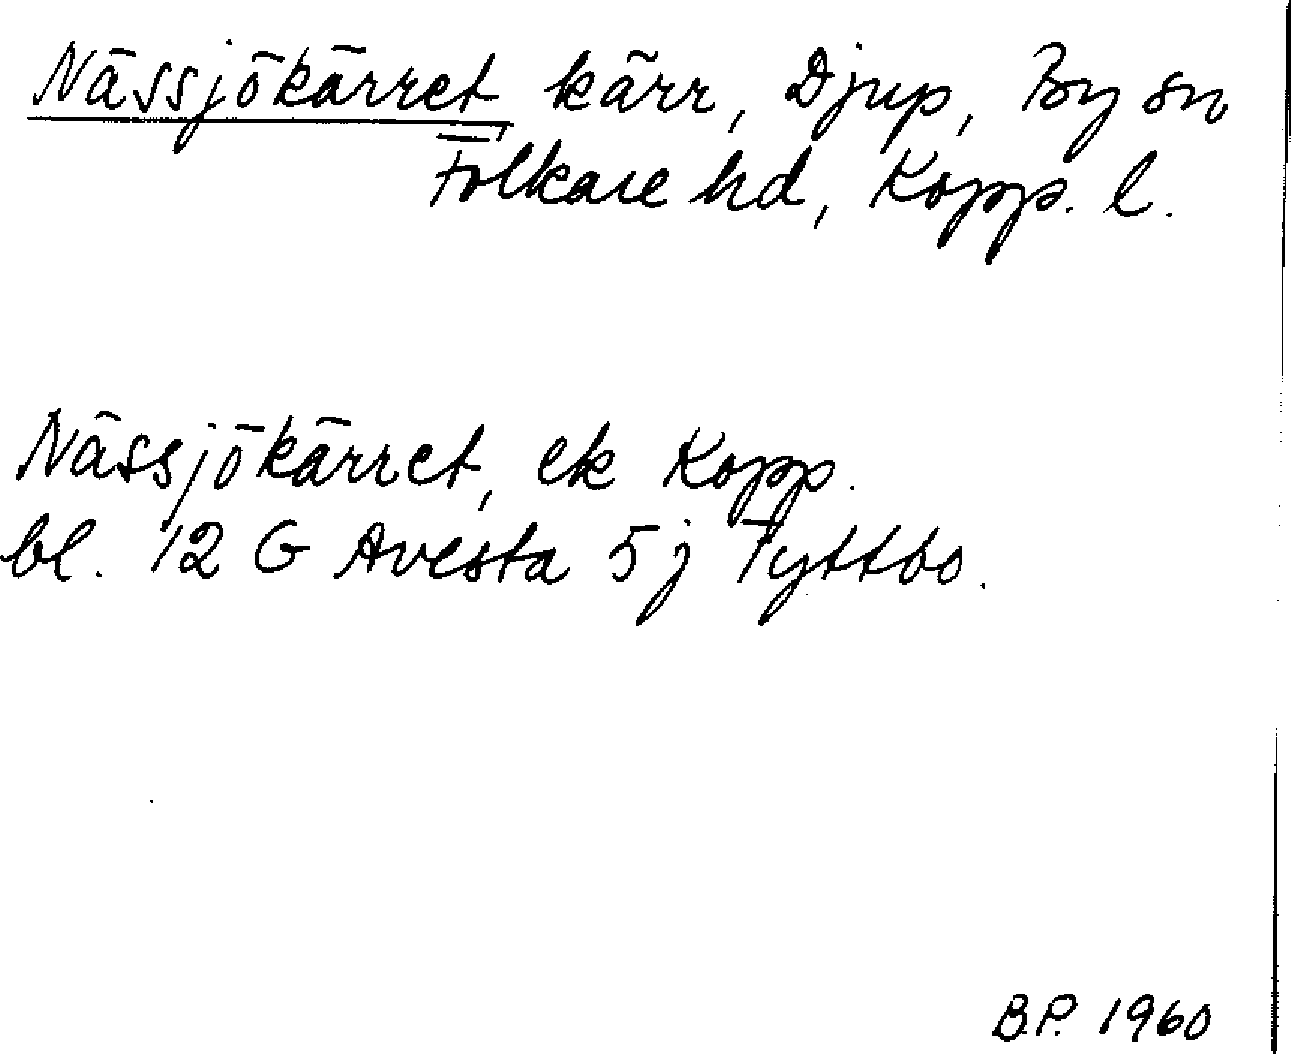 Nässjökärret kärr, Djup, By sn
Folkare hd, Kopp. l.
Nässjökärret, ek Kopp.
bl. 12 G Avesta 5 j Tyttbo.
B.P. 1960